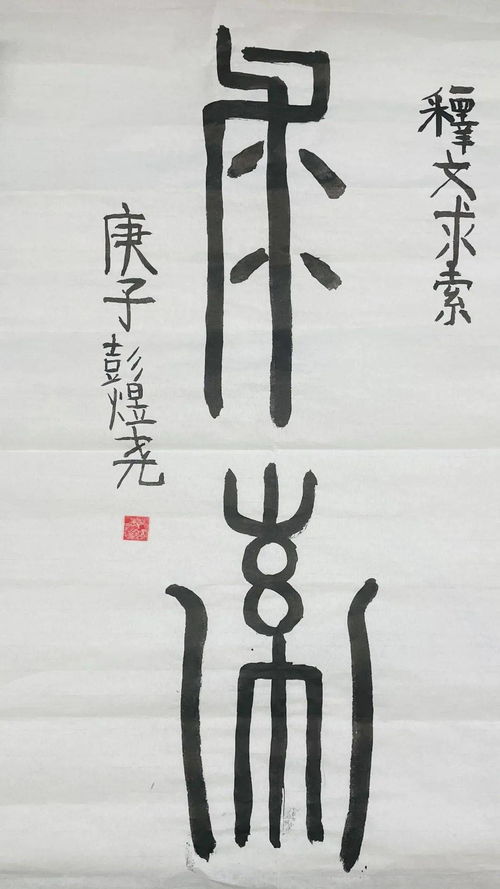 釋文求索
求索
庚子彭煜尧